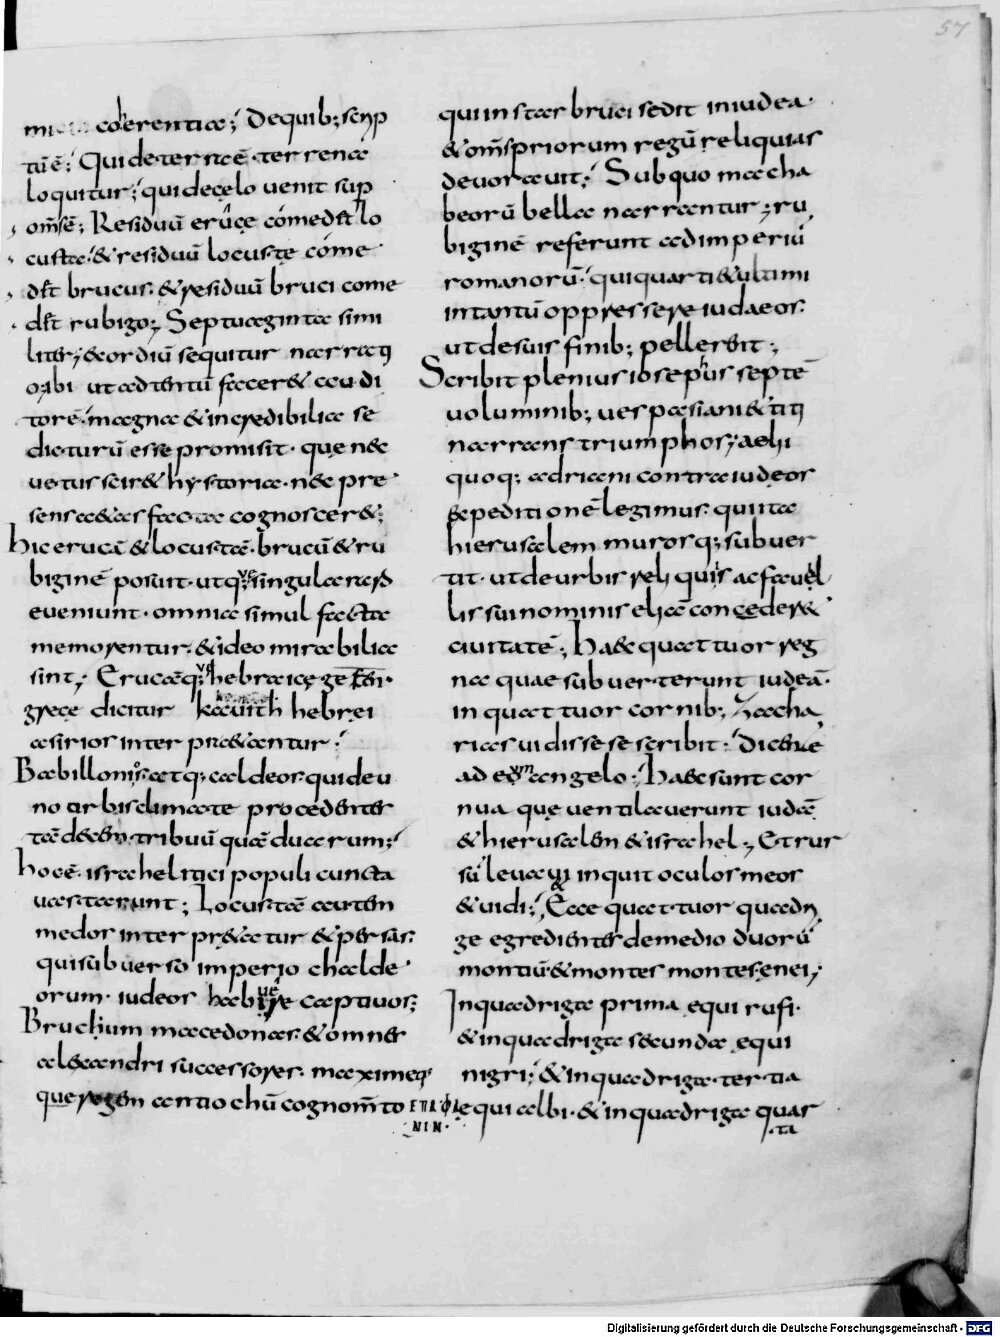 57
coherentia; De quib; scrip
tū ē; Qui de terra ē terrena
loquitur; qui de cęlo uenit sup
om̄s ē; Residuū erucę comedit lo
custa; & residuū locustę come
dit brucus. & residuū bruci come
dit rubigo; Septuaginta simi
liter; exordiū sequitur narratį
o ubi ut ad tentū facer& audi
torē magna & incredibilia se
dicturū esse promisit. que nec
uetus scir& hystoria. nec pre
sens aetas facta cognoscer&;
hic erucā & locustā. brucū & ru
biginē posuit. utq; singulatī
eueniunt. omnia simul facta
memorentur. & ideo mirabilia
sint; Erucāq; hebraicę gezem.
gręce dicitur kauith hebrei
asirios interpraetantur;
Babillonios atq; caldeos. qui de u
no orbis climate procedentes
tā decem tribuū quā duarum;
hoc ē. israhelitici populi cuncta
uastarunt; Locustā autem
medos interpraetatur & persas.
qui subuerso imperio chalde
orum. iudeos habuere captiuos;
Bruchum macedonas. & omnes
alexandri successores. maximeq;
que regem antiochū cognom̄to ΕΠΙΦΑ
ΝΙΝ.
qui instar bruci sedit in iudea.
& om̄s priorum regū reliquias
deuorauit; Sub quo macha
beorū bella narrantur; ru
biginē referunt ad imperiū
romanorū. qui quarti & ultimi
intantū oppressere iudaeos.
ut de suis finib; pellerent;
Scribit plenius iosephus septē
uoluminib; uespasiani & titi
narrans triumphos; aelii
quoq; adriani contra iudeos
expeditionē legimus. qui ita
hierusalem murosq; subuer
tit. ut de urbis reliquiis ac fauil
lis sui nominis eliā condeder&
ciuitatē; Haec quattuor reg
na quae subuerterunt iudeā.
in quattuor cornib; Zacha
rias uidisse se scribit. dicente
ad eum angelo; Haec sunt cor
nua que uentilauerunt iudā
& hierusalem & israhel; Et rur
sū leuaui inquit oculos meos
& uidi; Ecce quattuor quadri
gę egredientes de medio duorū
montiū. & montes montes enei;
In quadriga prima equi rufi.
& in quadriga secunda equi
nigri; & in quadriga tertia
equi albi. & in quadriga quar
ta
Digitalisierung gefördert durch die Deutsche Forschungsgemeinschaft - DFG